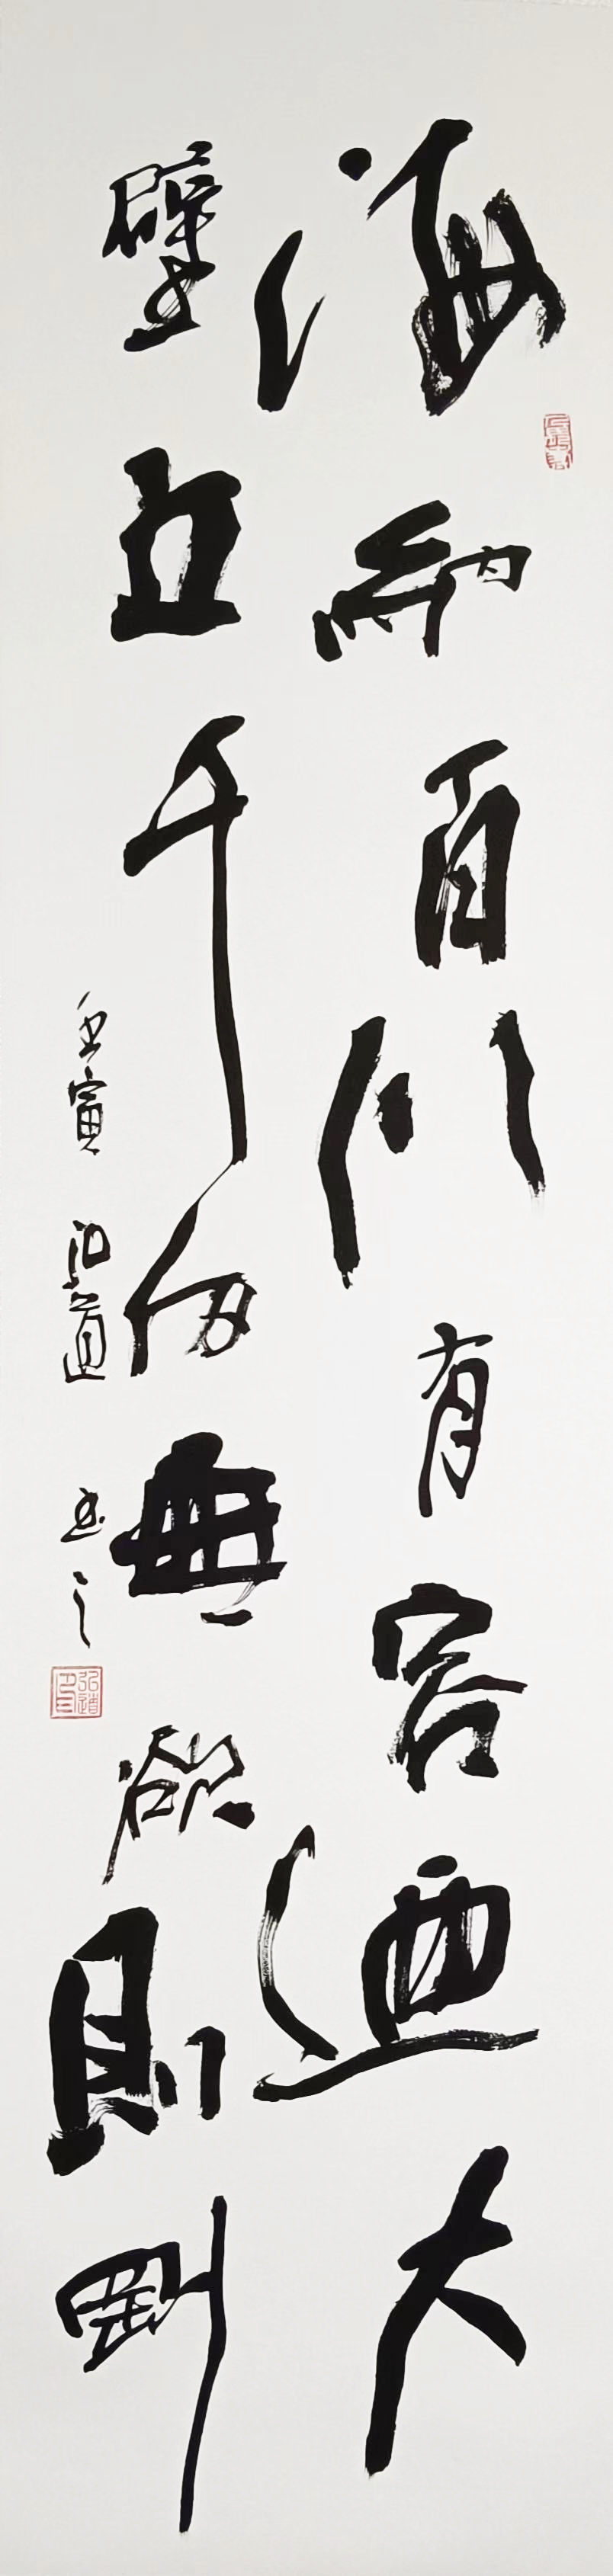 海納百川有容迺大
壁立千仞無欲則剛
壬寅 弘道 書之
弘道